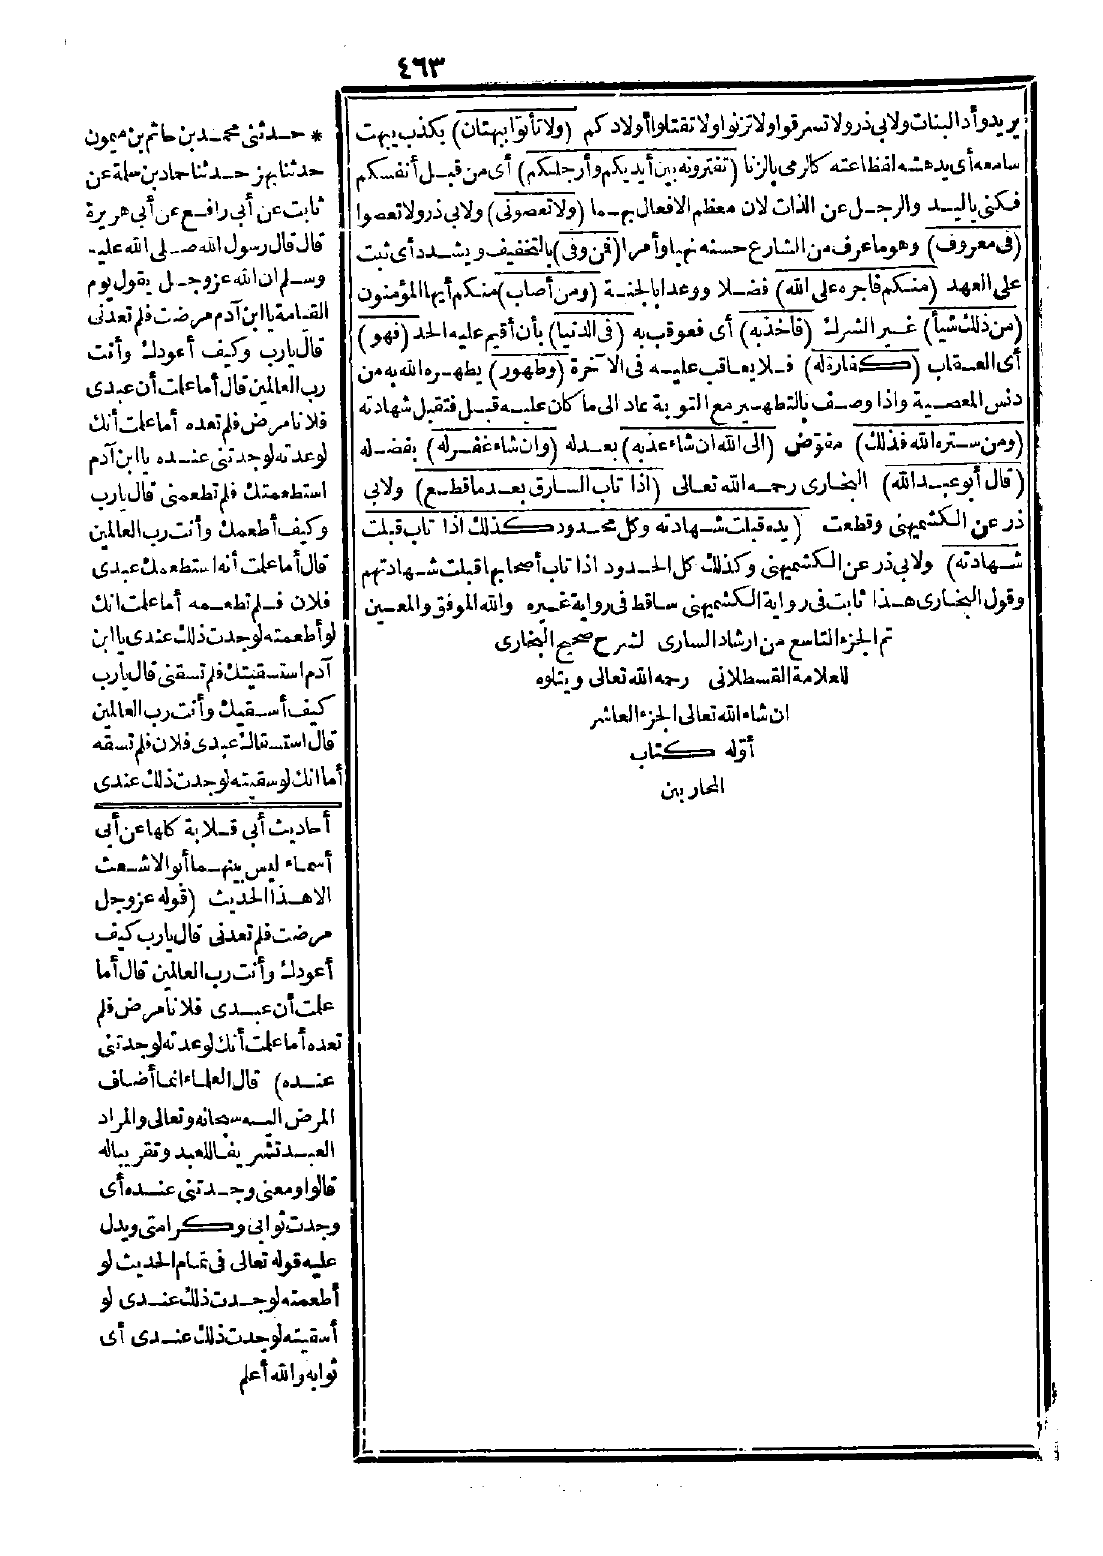 ٤٦٣
يريد وأد البنات ولابي ذر ولا تسرقوا ولا تزنوا ولا تقتلوا أولادكم (ولا تأتوا ببهتان) بكذب يبهت
سامعه أى يدهشه لفظاعته كالرمى بالزنا (تفترونه بين أيديكم وأرجلكم) أى من قبل أنفسكم
فكنى باليد والرجل عن الذات لان معظم الافعال بهما (ولا تعصونى) ولابي ذر ولا تعصوا
(فى معروف) وهو ما عرف من الشارع حسنه نهيا وأمرا (فمن وفى) بالتخفيف ويشدد أى ثبت
على العهد (منكم فاجره على الله) فضلا ووعدا بالجنة (ومن أصاب) منكم أيها المؤمنون
(من ذلك شيأ) غير الشرك (فأخذ به) أى فعوقب به (فى الدنيا) بأن أقيم عليه الحد (فهو)
أى العقاب (كفارة له) فلا يعاقب عليه فى الآخرة (وطهور) يطهره الله به من
دنس المعصية واذا وصف بالتطهير مع التوبة عاد الى ما كان عليه قبل فتقبل شهادته
(ومن ستره الله فذلك) مفوّض (الى الله ان شاء عذبه) بعدله (وان شاء غفر له) بفضله
(قال أبو عبد الله) البخارى رحمه الله تعالى (اذا تاب السارق بعد ما قطع) ولابي
ذر عن الكشميهنى وقطعت (يده قبلت شهادته وكل محدود كذلك اذا تاب قبلت
شهادته) ولابي ذر عن الكشميهنى وكذلك كل الحدود اذا تاب أصحابها قبلت شهادتهم
وقول البخارى هذا ثابت فى رواية الكشميهنى ساقط فى رواية غيره والله الموفق والمعين
تم الجزء التاسع من ارشاد السارى لشرح صحيح البخارى
للعلامة القسطلانى رحمه الله تعالى ويتلوه
ان شاء الله تعالى الجزء العاشر
أوّله كتاب
المحاربين
* حدثنى محمد بن حاتم بن ميمون
حدثنا بهز حدثنا حماد بن سلمة عن
ثابت عن أبى رافع عن أبى هريرة
قال قال رسول الله صلى الله عليه
وسلم ان الله عز وجل يقول يوم
القيامة يا ابن آدم مرضت فلم تعدنى
قال يارب وكيف أعودك وأنت
رب العالمين قال أما علمت أن عبدى
فلانا مرض فلم تعده أما علمت أنك
لو عدته لوجدتنى عنده يا ابن آدم
استطعمتك فلم تطعمنى قال يارب
وكيف أطعمك وأنت رب العالمين
قال أما علمت أنه استطعمك عبدى
فلان فلم تطعمه أما علمت انك
لو أطعمته لوجدت ذلك عندى يا ابن
آدم استسقيتك فلم تسقنى قال يارب
كيف أسقيك وأنت رب العالمين
قال استسقاك عبدى فلان فلم تسقه
أما انك لو سقيته لوجدت ذلك عندى
أحاديث أبى قلابة كلها عن أبى
أسماء ليس بينهما أبو الاشعث
الا هذا الحديث (قوله عز وجل
مرضت فلم تعدنى قال يارب كيف
أعودك وأنت رب العالمين قال أما
علمت أن عبدى فلانا مرض فلم
تعده أما علمت أنك لو عدته لوجدتنى
عنده) قال العلماء انما أضاف
المرض اليه سبحانه وتعالى والمراد
العبد تشريفا للعبد وتقريبا له
قالوا ومعنى وجدتنى عنده أى
وجدت ثوابى وكرامتى ويدل
عليه قوله تعالى فى تمام الحديث لو
أطعمته لوجدت ذلك عندى لو
أسقيته لوجدت ذلك عندى أى
ثوابه والله أعلم